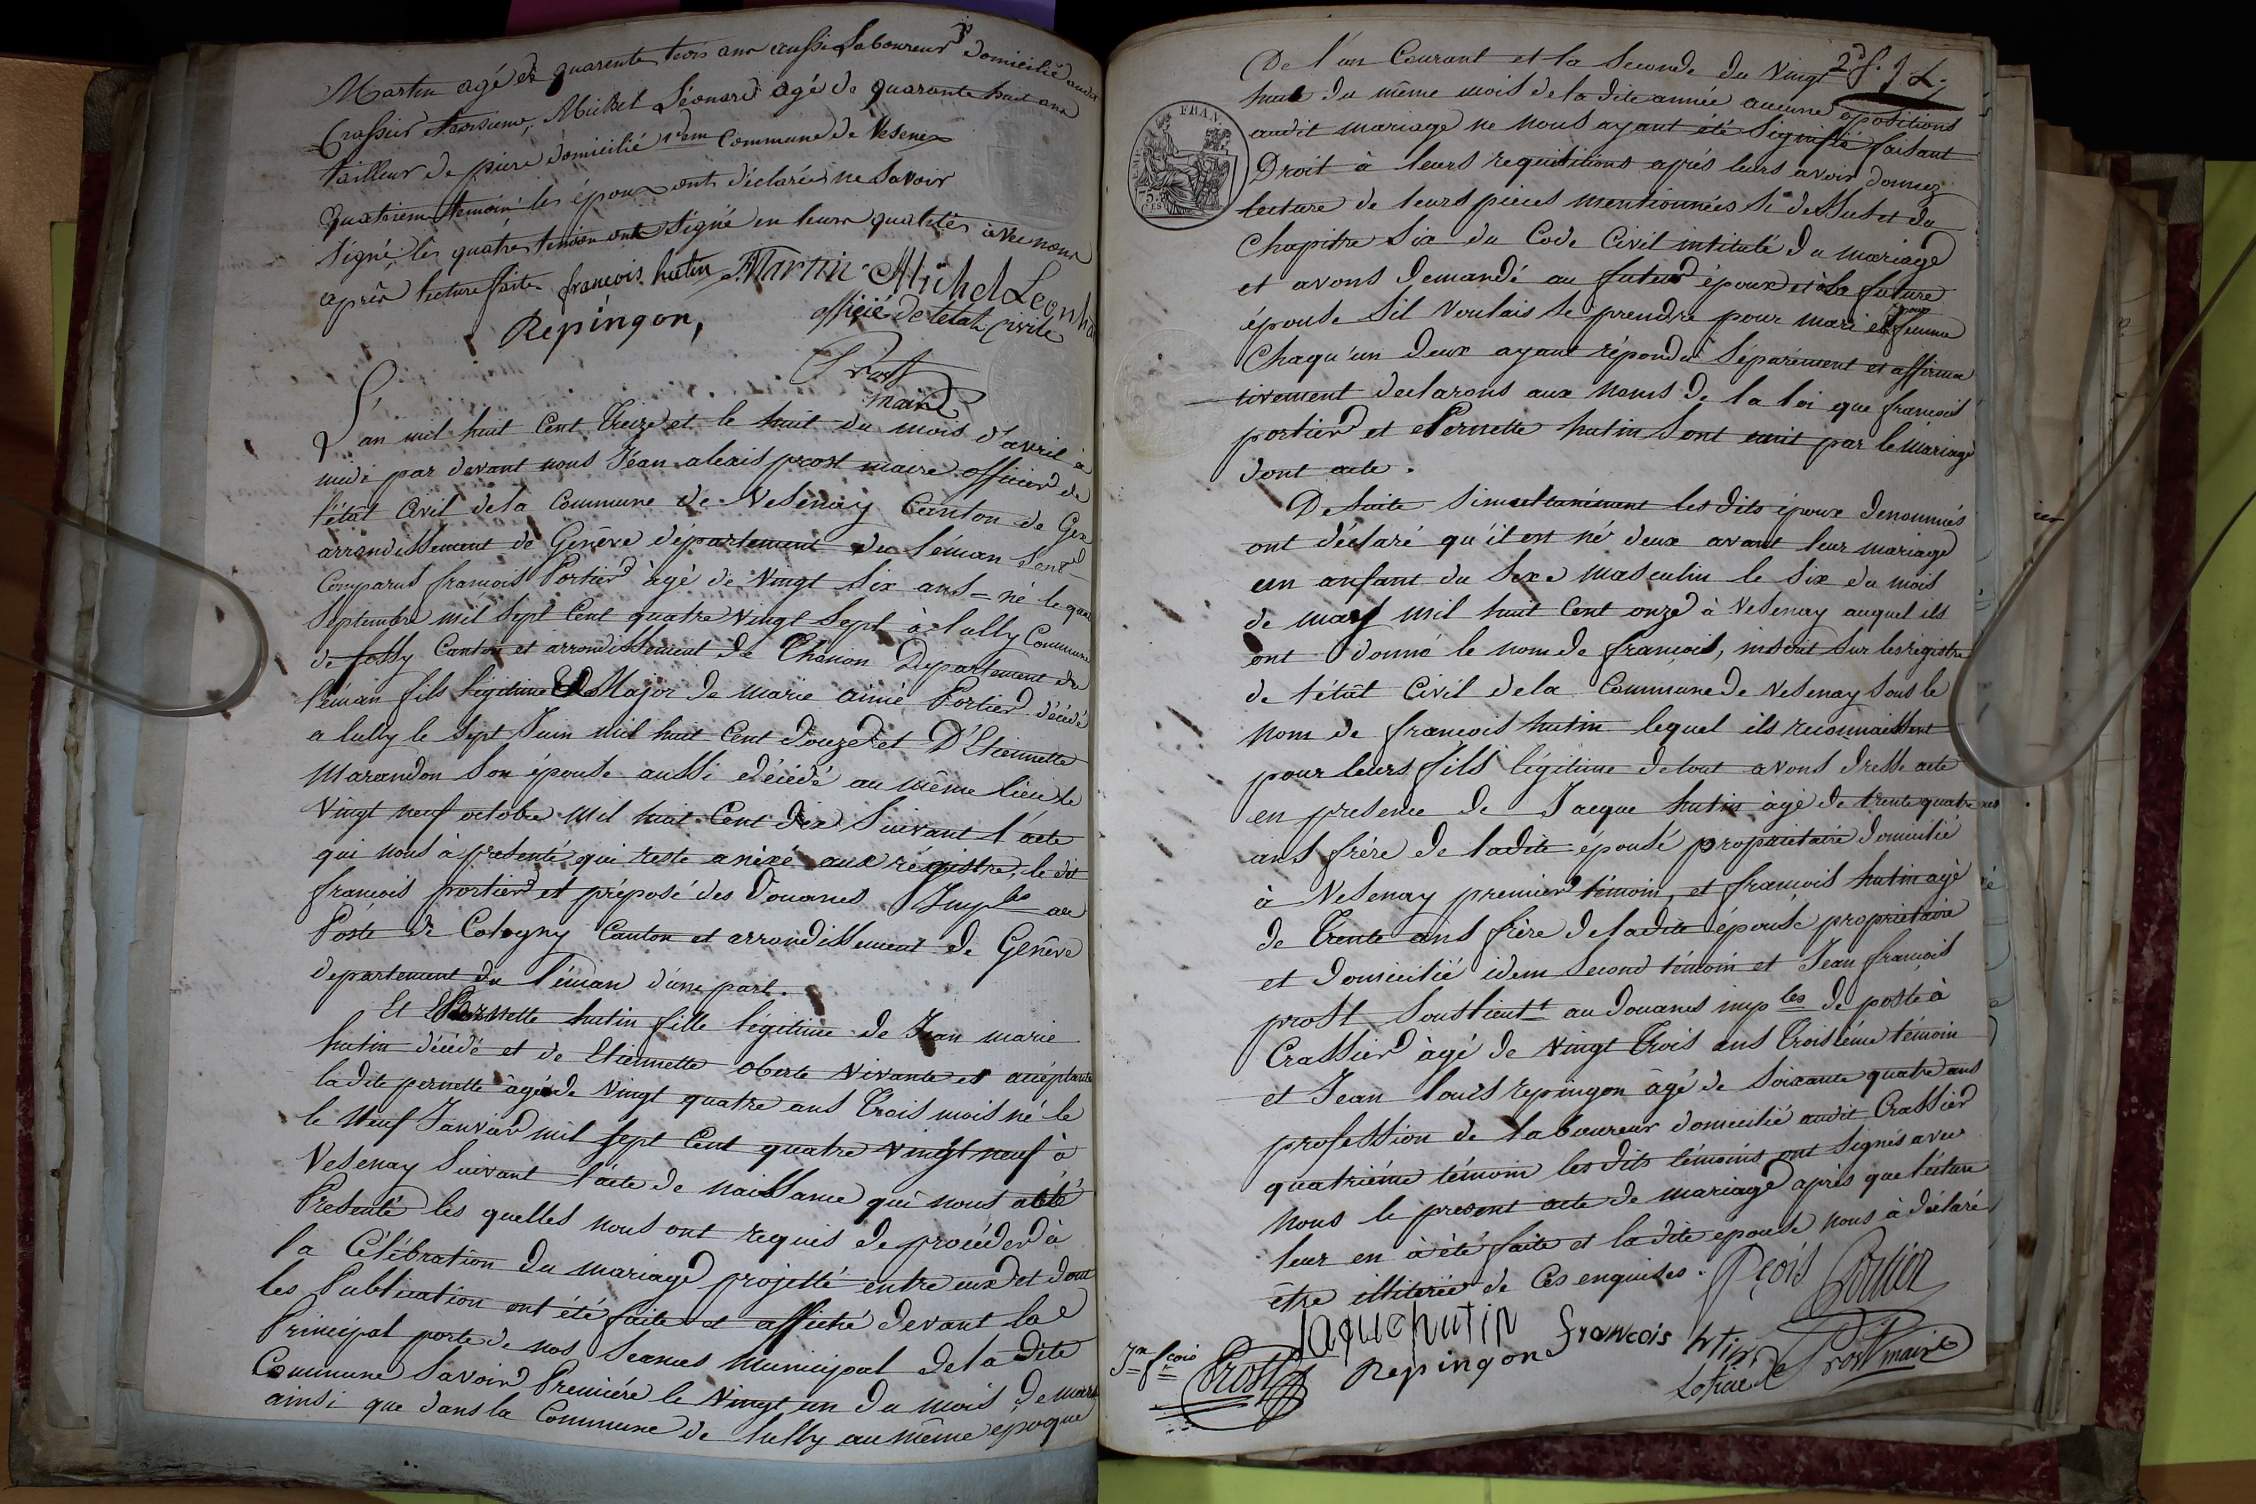 Martin agé de quarente trois ans aussi Laboureur domicilié audit
Crassier troisieme, Michel Léonard agé de quarante huit ans
tailleur de piere domicilié idem Commune de Vesenex
quatrieme temoin les époux ont déclarée ne Savoir
Signé les quatre temoin ont Signé en leurs qualités avec nous
après lecture faite françois hutin Martin Michel Leonhar
Repingon,
officié de letat civile
Prost
maire
L'an mil huit Cent Treize et le huit du mois d'avril à
midi par devant nous Jéan alexis prost maire officier de
l'étât Civil dela Commune de Vesenay Canton de Gex
arrondissement de Genêve département du Léman Sont
Comparus françois Portier âgé de Vingt Six ans = né le quatre
Septembre mil Sept Cent quatre Vingt Sept à Lully Commune
de fessy Canton et arrondissement de Thonon Departement du
Léman fils légitime et Major de marie aimé Portier décédé
a Lully le Sept Juin Mil huit Cent douze et D'Etiennette
Marandon Son épouse aussi décédé au même lieu le
Vingt neuf octobre Mil huit Cent dix Suivant l'acte
qui nous à presenté qui reste anéxé aux régistre, le dit
françois portier et préposé des Douanes Imples au
Poste de Cologny Canton et arrondissement de Genêve
departement du Léman d'une part.
Et Pernette hutin fille légitime de Jean marie
hutin décédé et de Etiennette oberte Vivante et acceptante
ladite pernette âgée de Vingt quatre ans Trois mois né le
le Neuf Janvier mil Sept Cent quatre Vingt neuf à
Vesenay Suivant l'acte de naissance qui nous a été
Presenté les quelles nous ont requis de procéder à
la Célébration du mariage projetté entre eux et dont
les Publication ont été faite et affiché devant la
Principal porte de nos Seances Municipal dela dite
Commune Savoir Premiére le Vingt un du mois de mars
ainsi que dans la Commune de Lully au même epoque
2d f. J L.
De l'an Courant et la Seconde du Vingt
huit du même mois de la dite année aucune opositions
audit mariage ne nous ayant été Signifié faisant
Droit à leurs requisitions aprés leurs avoir donnez
lecture de leurs pieces mentionnées Si dessus et du
Chapitre Six du Code Civil intitulé du mariage
et avons demandé au futur époux et à la future
épouse Sil Voulais Se prendre pour mari et pour femme
Chaqu'un deux ayant répondu Séparément et affirma
tivement declarons aux noms de la loi que françois
portier et Pernette hutin Sont unit par le mariage
dont acte.
De Suite Simultanément les dits époux denommés
ont déclaré qu'il est né deux avant leur mariage
un anfant du Sexe masculin le Six du mois
de mars mil huit Cent onze à Vesenay auquel ils
ont donné le nom de françois, inscrit Sur les régistre
de l'étât Civil dela Commune de Vesenay Sous le
Nom de françois hutin lequel ils reconnaissent
pour leurs fils légitime de tout avons dresse acte
en presence de Jacque hutin âgé de trente quatre
ans frère de ladite épouse propriétaire domicilié
à Vesenay premier témoin, et françois hutin agé
de Trente ans frère deladite épouse propriétaire
et domicilié idem Second témoin et Jean françois
prost Souslieutt au Douanes imples de poste à
Crassier âgé de Vingt Trois ans Troisiéme témoin
et Jean Louis repingon âgé de Soixante quatre ans
profession de laboureur domicilié audit Crassier
quatriéme témoin les dits témoins ont Signés avec
Nous le present acte de mariage après que lécture
leur en à été faite et la dite epouse nous à déclaré
être illiterée de Ces enquises. fçois Portier
Jaque hutin françois htin
Jn fçois Prost Repingon Prost maire